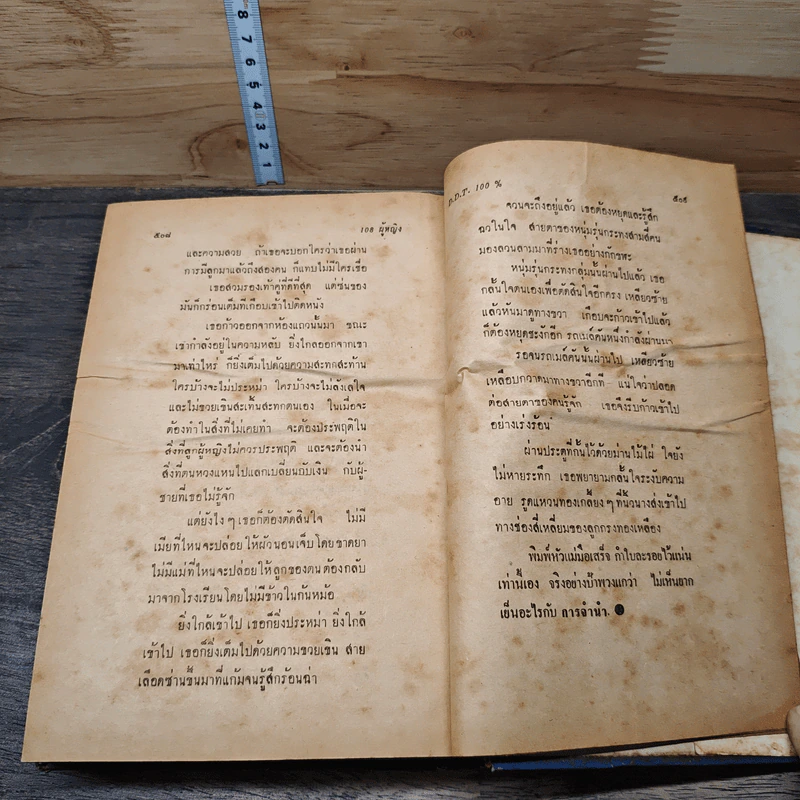 8
7
6
5
4
3
2
1
๕๐๘
108 ผู้หญิง
และความสวย ถ้าเธอจะบอกใครว่าเธอผ่าน
การมีลูกมาแล้วถึงสองคน ก็แทบไม่มีใครเชื่อ
เธอสวมรองเท้าคู่ที่ดีที่สุด แต่ซ่นของ
มันก็กร่อนเต็มที่เกือบเข้าไปติดหนัง
เธอก้าวออกจากห้องแถวนั้นมา ขณะ
เขากำลังอยู่ในความหลับ ยิ่งไกลออกจากเขา
มาเท่าไหร่ ก็ยิ่งเต็มไปด้วยความสะทกสะท้าน
ใครบ้างจะไม่ประหม่า ใครบ้างจะไม่ลังเลใจ
และไม่ขวยเขินสะเทิ้นสะทกตนเอง ในเมื่อจะ
ต้องทำในสิ่งที่ไม่เคยทำ จะต้องประพฤติใน
สิ่งที่ลูกผู้หญิงไม่ควรประพฤติ และจะต้องนำ
สิ่งที่ตนหวงแหนไปแลกเปลี่ยนกับเงิน กับผู้-
ชายที่เธอไม่รู้จัก
แต่ยังไง ๆ เธอก็ต้องตัดสินใจ ไม่มี
เมียที่ไหนจะปล่อยให้ผัวนอนเจ็บโดยขาดยา
ไม่มีแม่ที่ไหนจะปล่อยให้ลูกของตนต้องกลับ
มาจากโรงเรียนโดยไม่มีข้าวในก้นหม้อ
ยิ่งใกล้เข้าไป เธอก็ยิ่งประหม่า ยิ่งใกล้
เข้าไป เธอก็ยิ่งเต็มไปด้วยความขวยเขิน สาย
เลือดซ่านขึ้นมาที่แก้มจนรู้สึกร้อนฉ่า
D.D.T. 100 %
๕๐๙
จวนจะถึงอยู่แล้ว เธอต้องหยุดและรู้สึก
ฉิวในใจ สายตาของหนุ่มรุ่นกระทงสามสี่คน
มองลวนลามมาที่ร่างเธออย่างกักขฬะ
หนุ่มรุ่นกระทงกลุ่มนั้นผ่านไปแล้ว เธอ
กลั้นใจตนเองเพื่อตัดสินใจอีกครั้ง เหลียวซ้าย
แล้วหันมาดูทางขวา เกือบจะก้าวเข้าไปแล้ว
ก็ต้องหยุดชะงักอีก รถเมล์คันหนึ่งกำลังผ่านมา
รอจนรถเมล์คันนั้นผ่านไป เหลียวซ้าย
เหลือบกวาดมาทางขวาอีกที— แน่ใจว่าปลอด
ต่อสายตาของคนรู้จัก— เธอจึงรีบก้าวเข้าไป
อย่างเร่งร้อน
ผ่านประตูที่กั้นไว้ด้วยม่านไม้ไผ่ ใจยัง
ไม่หายระทึก เธอพยายามกลั้นใจระงับความ
อาย รูดแหวนทองเกลี้ยง ๆ ที่นิ้วนางส่งเข้าไป
ทางช่องสี่เหลี่ยมของลูกกรงทองเหลือง
พิมพ์หัวแม่มือเสร็จ กำใบละร้อยไว้แน่น
เท่านี้เอง จริงอย่างป้าพวงแกว่า ไม่เห็นยาก
เย็นอะไรกับ การจำนำ. ●